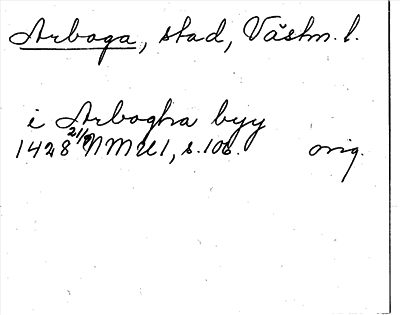 Arboga, stad, Västm. l.
i Arbogha byy
1428 21/9 NMU 1, s. 106. orig.